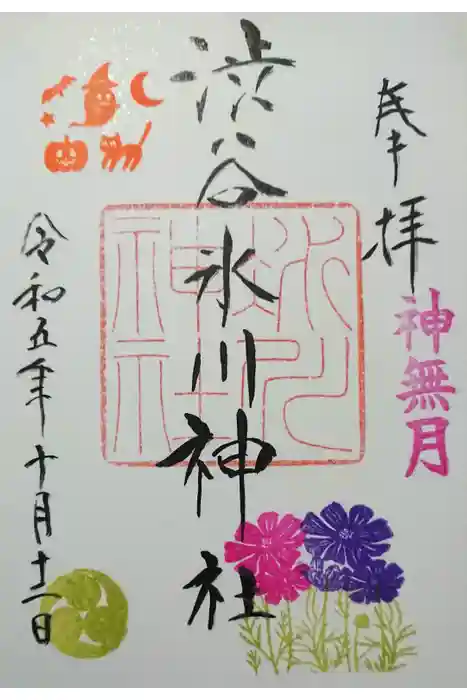 奉拝
神無月
渋谷氷川神社
氷川
神社
令和五年十月十一日